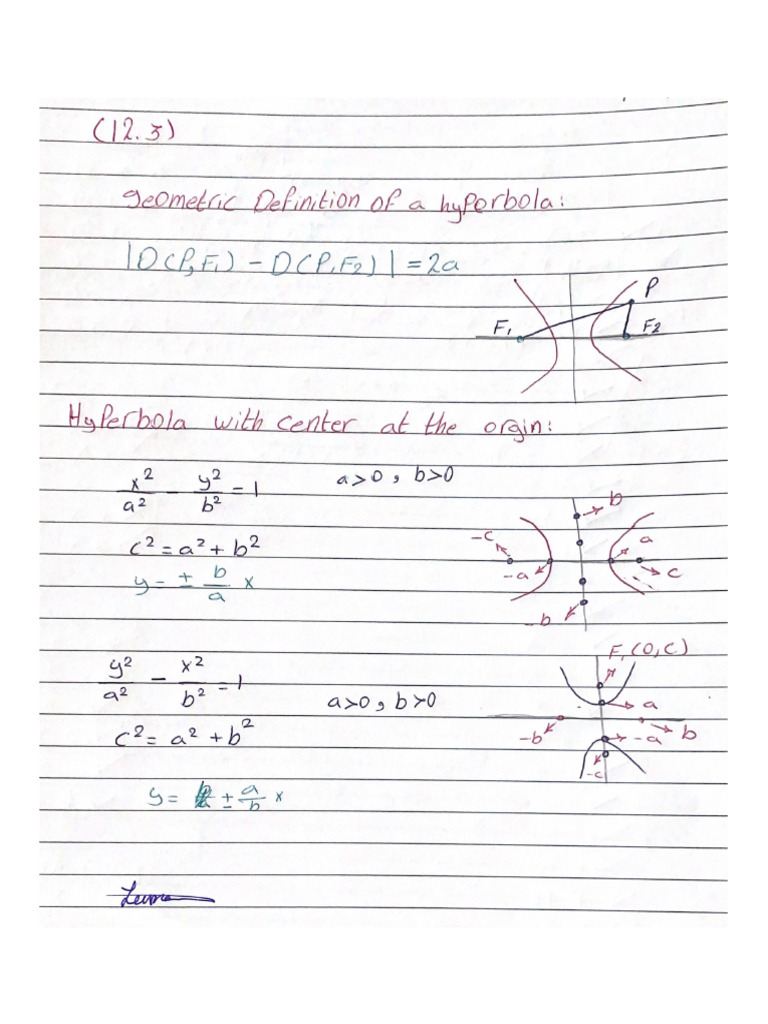 (12.3)
geometric Definition of a hyperbola:
|D(P,F₁) - D(P,F₂)| = 2a
P
F₁
F₂
Hyperbola with center at the orgin:
x²/a² - y²/b² = 1
a>0, b>0
c² = a² + b²
y = ± b/a x
b
-c
a
-a
c
-b
y²/a² - x²/b² = 1
a>0, b>0
c² = a² + b²
y = ± a/b x
F₁(0,c)
a
-b
-a
b
-c